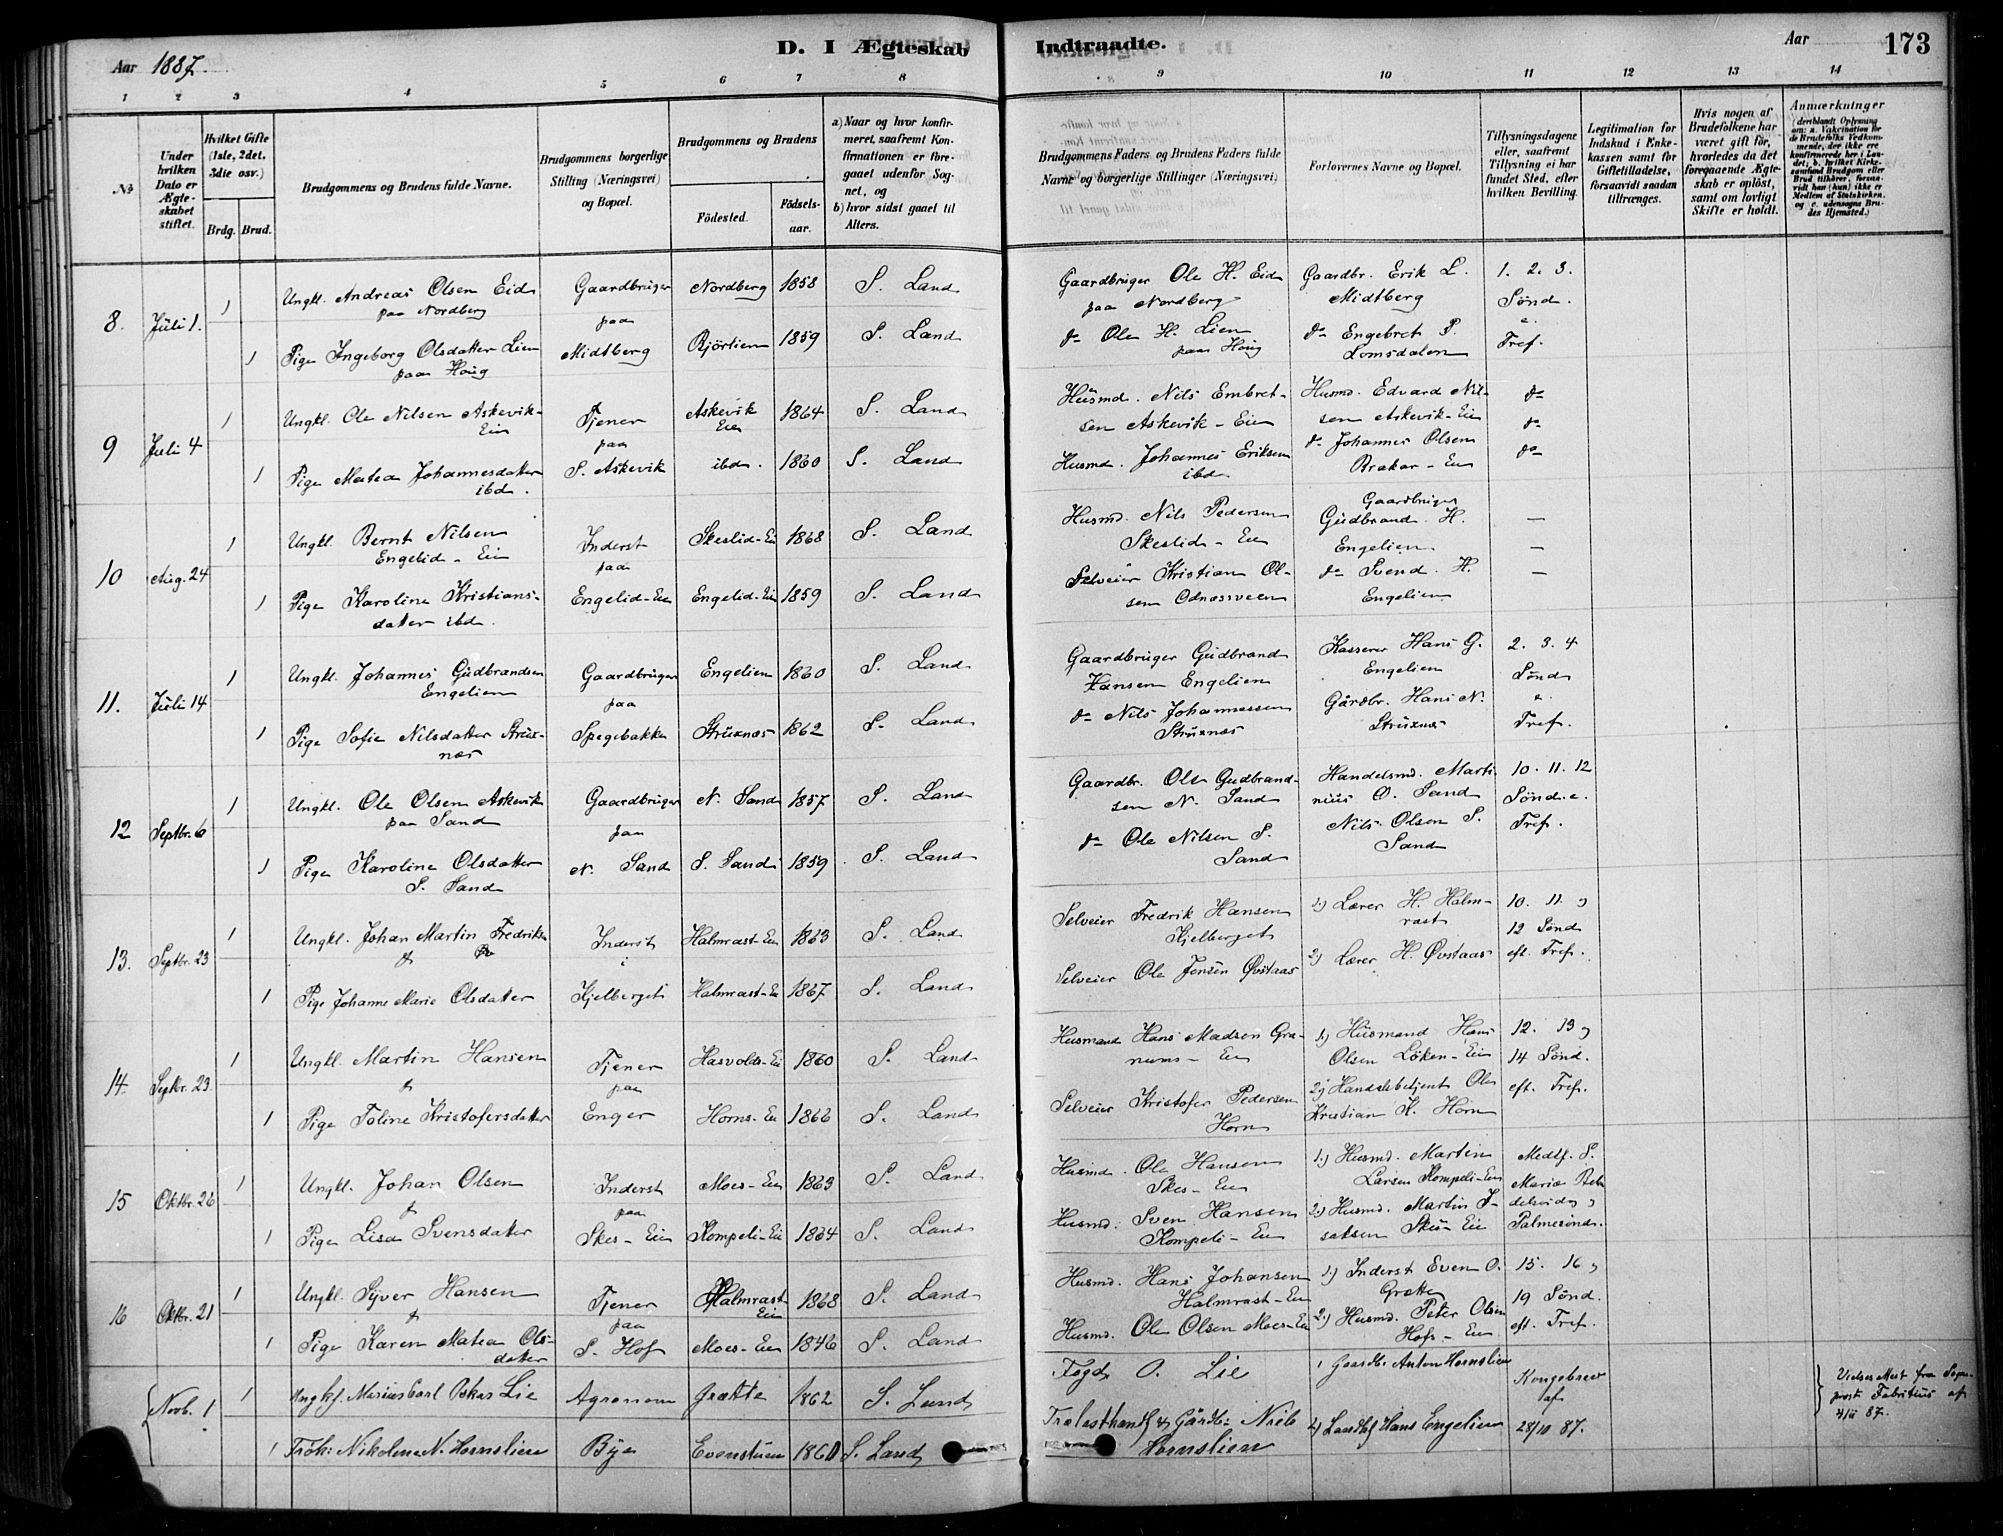 Aar 1887.
D. I Ægteskab Indtraadte.
Aar
173
1 2 3 4 5 6 7 8 9 10 11 12 13 14
No
Under hvilken Dato er Ægteskabet stiftet.
Hvilket Gifte (1ste, 2det, 3die osv.)
Brdg. Brud.
Brudgommens og Brudens fulde Navne.
Brudgommens borgerlige Stilling (Næringsvei) og Bopæl.
Brudgommens og Brudens
Fødested.
Fødselsaar.
a) Naar og hvor konfirmeret, saafremt Konfirmationen er foregaaet udenfor Sognet, og
b) hvor sidst gaaet til Alters.
Brudgommens Faders og Brudens Faders fulde Navne og borgerlige Stillinger (Næringsvei)
Forlovernes Navne og Bopæl.
Tillysningsdagene eller, saafremt Tillysning ei har fundet Sted, efter hvilken Bevilling.
Legitimation for Indskud i Enkekassen samt for Giftetilladelse, forsaavidt saadan tiltrænges.
Hvis nogen af Brudefolkene har været gift før, hvorledes da det foregaaende Ægteskab er opløst, samt om lovligt Skifte er holdt.
Anmærkninger (deriblandt Oplysning om: a. Vakcination for de Brudefolks Vedkommende, der ikke ere konfirmerede her i Landet; b. hvilket Kirkesamfund Brudgom eller Brud tilhører, forsaavidt han (hun) ikke er Medlem af Statskirken. og c. udensogns Brudes Hjemsted.)
8. Juli 1. 1 Ungkl. Andreas Olsen Eid paa Nordberg Gaardbruger paa Midtberg Nordberg 1858 S. Land Gaardbruger Ole H. Eid paa Nordberg Gaardbr. Erik L. Midtberg 1. 2. 3. Sønd. e. Tref.
1 Pige Ingeborg Olsdatter Lien paa Houg 1859 S. Land do Ole H. Lien paa Houg do Engebret P. Lomsdalen
9 Juli 4 1 Ungkl. Ole Nilsen Askevik-Eie Tjener paa S. Askevik Askevik Eie 1864 S. Land Husmd. Nils Embretsen Askevik-Eie Husmd. Edvard Nilsen Askevik-Eie do do do
1 Pige Matea Johannesdatter ibd. ibd. 1860 S. Land Husmd. Johannes Eriksen ibd. do Johannes Olsen Brakar-Eie
10 Aug. 24 1 Ungkl. Bernt Nilsen Engelid-Eie Inderst paa Engelid-Eie Skeslid-Eie 1868 S. Land Husmd. Nils Pedersen Skeslid-Eie Gaardbruger Gudbrand H. Engelien — — —
1 Pige Karoline Kristiansdatter ibd. Engelid-Eie 1859 S. Land Selveier Kristian Olsen Odnæsveen do Svend H. Engelien
11. Juli 14 1 Ungkl. Johannes Gudbrandsen Engelien Gaardbruger paa Spegebakke Engelien 1860 S. Land Gaardbruger Gudbrand Hansen Engelien Kasserer Hans G. Engelien 2. 3. 4 Sønd e. Tref.
1 Pige Sofie Nilsdatter Struxnæs Struxnæs 1862 S. Land do Nils Johannessen Struxnæs Gårdbr. Hans N. Struxnæs
12 Septbr. 6 1 Ungkl. Ole Olsen Askevik paa Sand Gaardbruger paa N. Sand N. Sand 1857 S. Land Gaardbr. Ole Gudbrandsen N. Sand Handelsmd. Martinius O. Sand 10. 11. 12 Sønd. e. Tref.
1 Pige Karoline Olsdatter S. Sand S. Sand 1859 S. Land do Ole Nilsen S. Sand Nils Olsen S. Sand
13. Septbr. 23 1 Ungkl. Johan Martin Fredriksen & Inderst i Kjelberget Halmrast-Eie 1863 S. Land Selveier Fredrik Hansen Kjelberget 1.) Lærer H. Halmrast 10. 11. 12 Sønd eft. Tref.
1 Pige Johanne Marie Olsdatter Halmrast-Eie 1867 S. Land Selveier Ole Jensen Øvstaas 2.) Lærer H. Øvstaas
14 Septbr. 23 1 Ungkl. Martin Hansen & Tjener paa Enger Hasvolds-Eie 1860 S. Land Husmand Hans Madsen Granums-Eie 1.) Husmand Hans Olsen Løken-Eie 12. 13, 14 Sønd. eft. Tref.
1 Pige Toline Kristofersdatter Horns-Eie 1866 S. Land Selveier Kristofer Pedersen Horn 2.) Handelsbetjent Ole Kristian K. Horn
15 Oktbr. 26 1 Ungkl. Johan Olsen & Inderst paa Skes-Eie Moes-Eie 1863 S. Land Husmd. Ole Hansen Skes-Eie 1.) Husmd. Martin Larsen Kompeli-Eie Mariæ Palmesønd.
1 Pige Lisa Svensdatter Kompeli-Eie 1864 S. Land Husmd. Sven Hansen Kompeli-Eie 2.) Husmd. Martin Isaksen Skes-Eie
16 Oktbr. 21 1 Ungkl. Syver Hansen & Tjener paa S. Hof Halmrast Eie 1868 S. Land Husmd. Hans Johansen Halmrast-Eie 1.) Inderst Even O. Grøtte 15. 16, 19 Sønd. eft. Tref.
1 Pige Karen Matea Olsdatter Moes-Eie 1846 S. Land Husmd. Ole Olsen Moes-Eie 2.) Husmd. Peter Olsen Hofs-Eie
Novb. 1 1 Ungkl. Marius Carl Oskar Lie Agronom Bye Grøtte 1862 S. Land Fogd O. Lie 1 Gaardb. Anton Hornslien Kongebrev af 28/10 87. Vielses Attest fra Sogneprest Fabritius af 4/11 87.
1 Frøk: Nikoline N. Hornslien Evenstuen 1861 S. Land Trælasthandl & Gårdb: Niels Hornslien 2) Landhl Hans Engelien